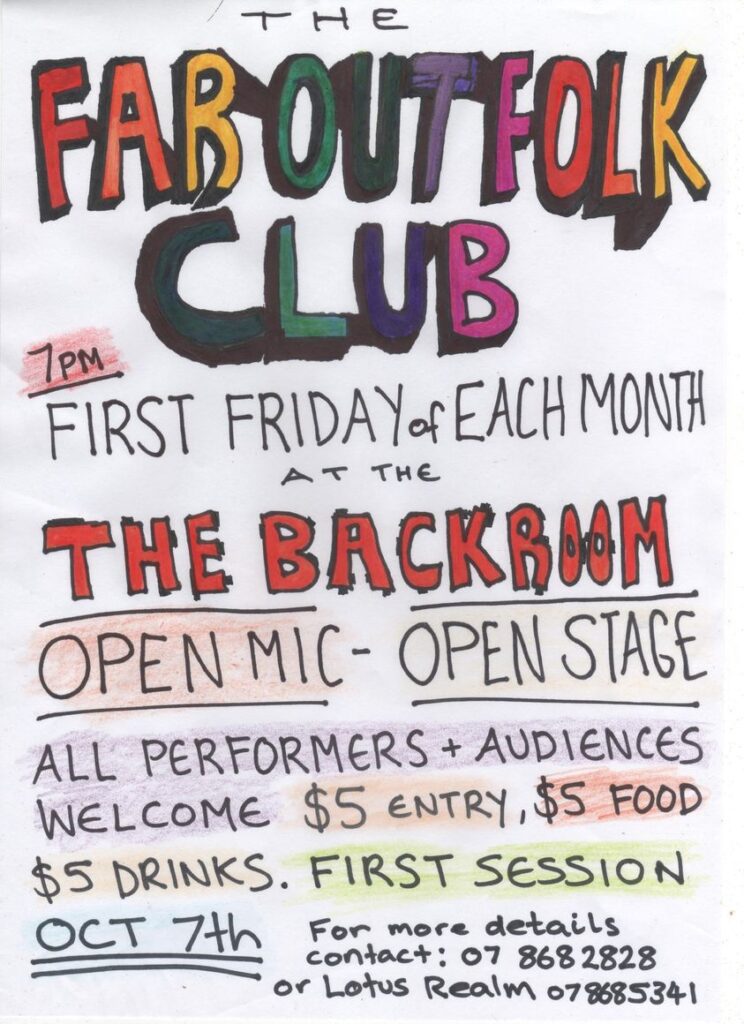 THE
FAR OUT FOLK
CLUB
7PM
FIRST FRIDAY of EACH MONTH
AT THE
THE BACKROOM
OPEN MIC - OPEN STAGE
ALL PERFORMERS + AUDIENCES
WELCOME $5 ENTRY, $5 FOOD
$5 DRINKS. FIRST SESSION
OCT 7th
For more details
contact: 07 868 2828
or Lotus Realm 07 8685341